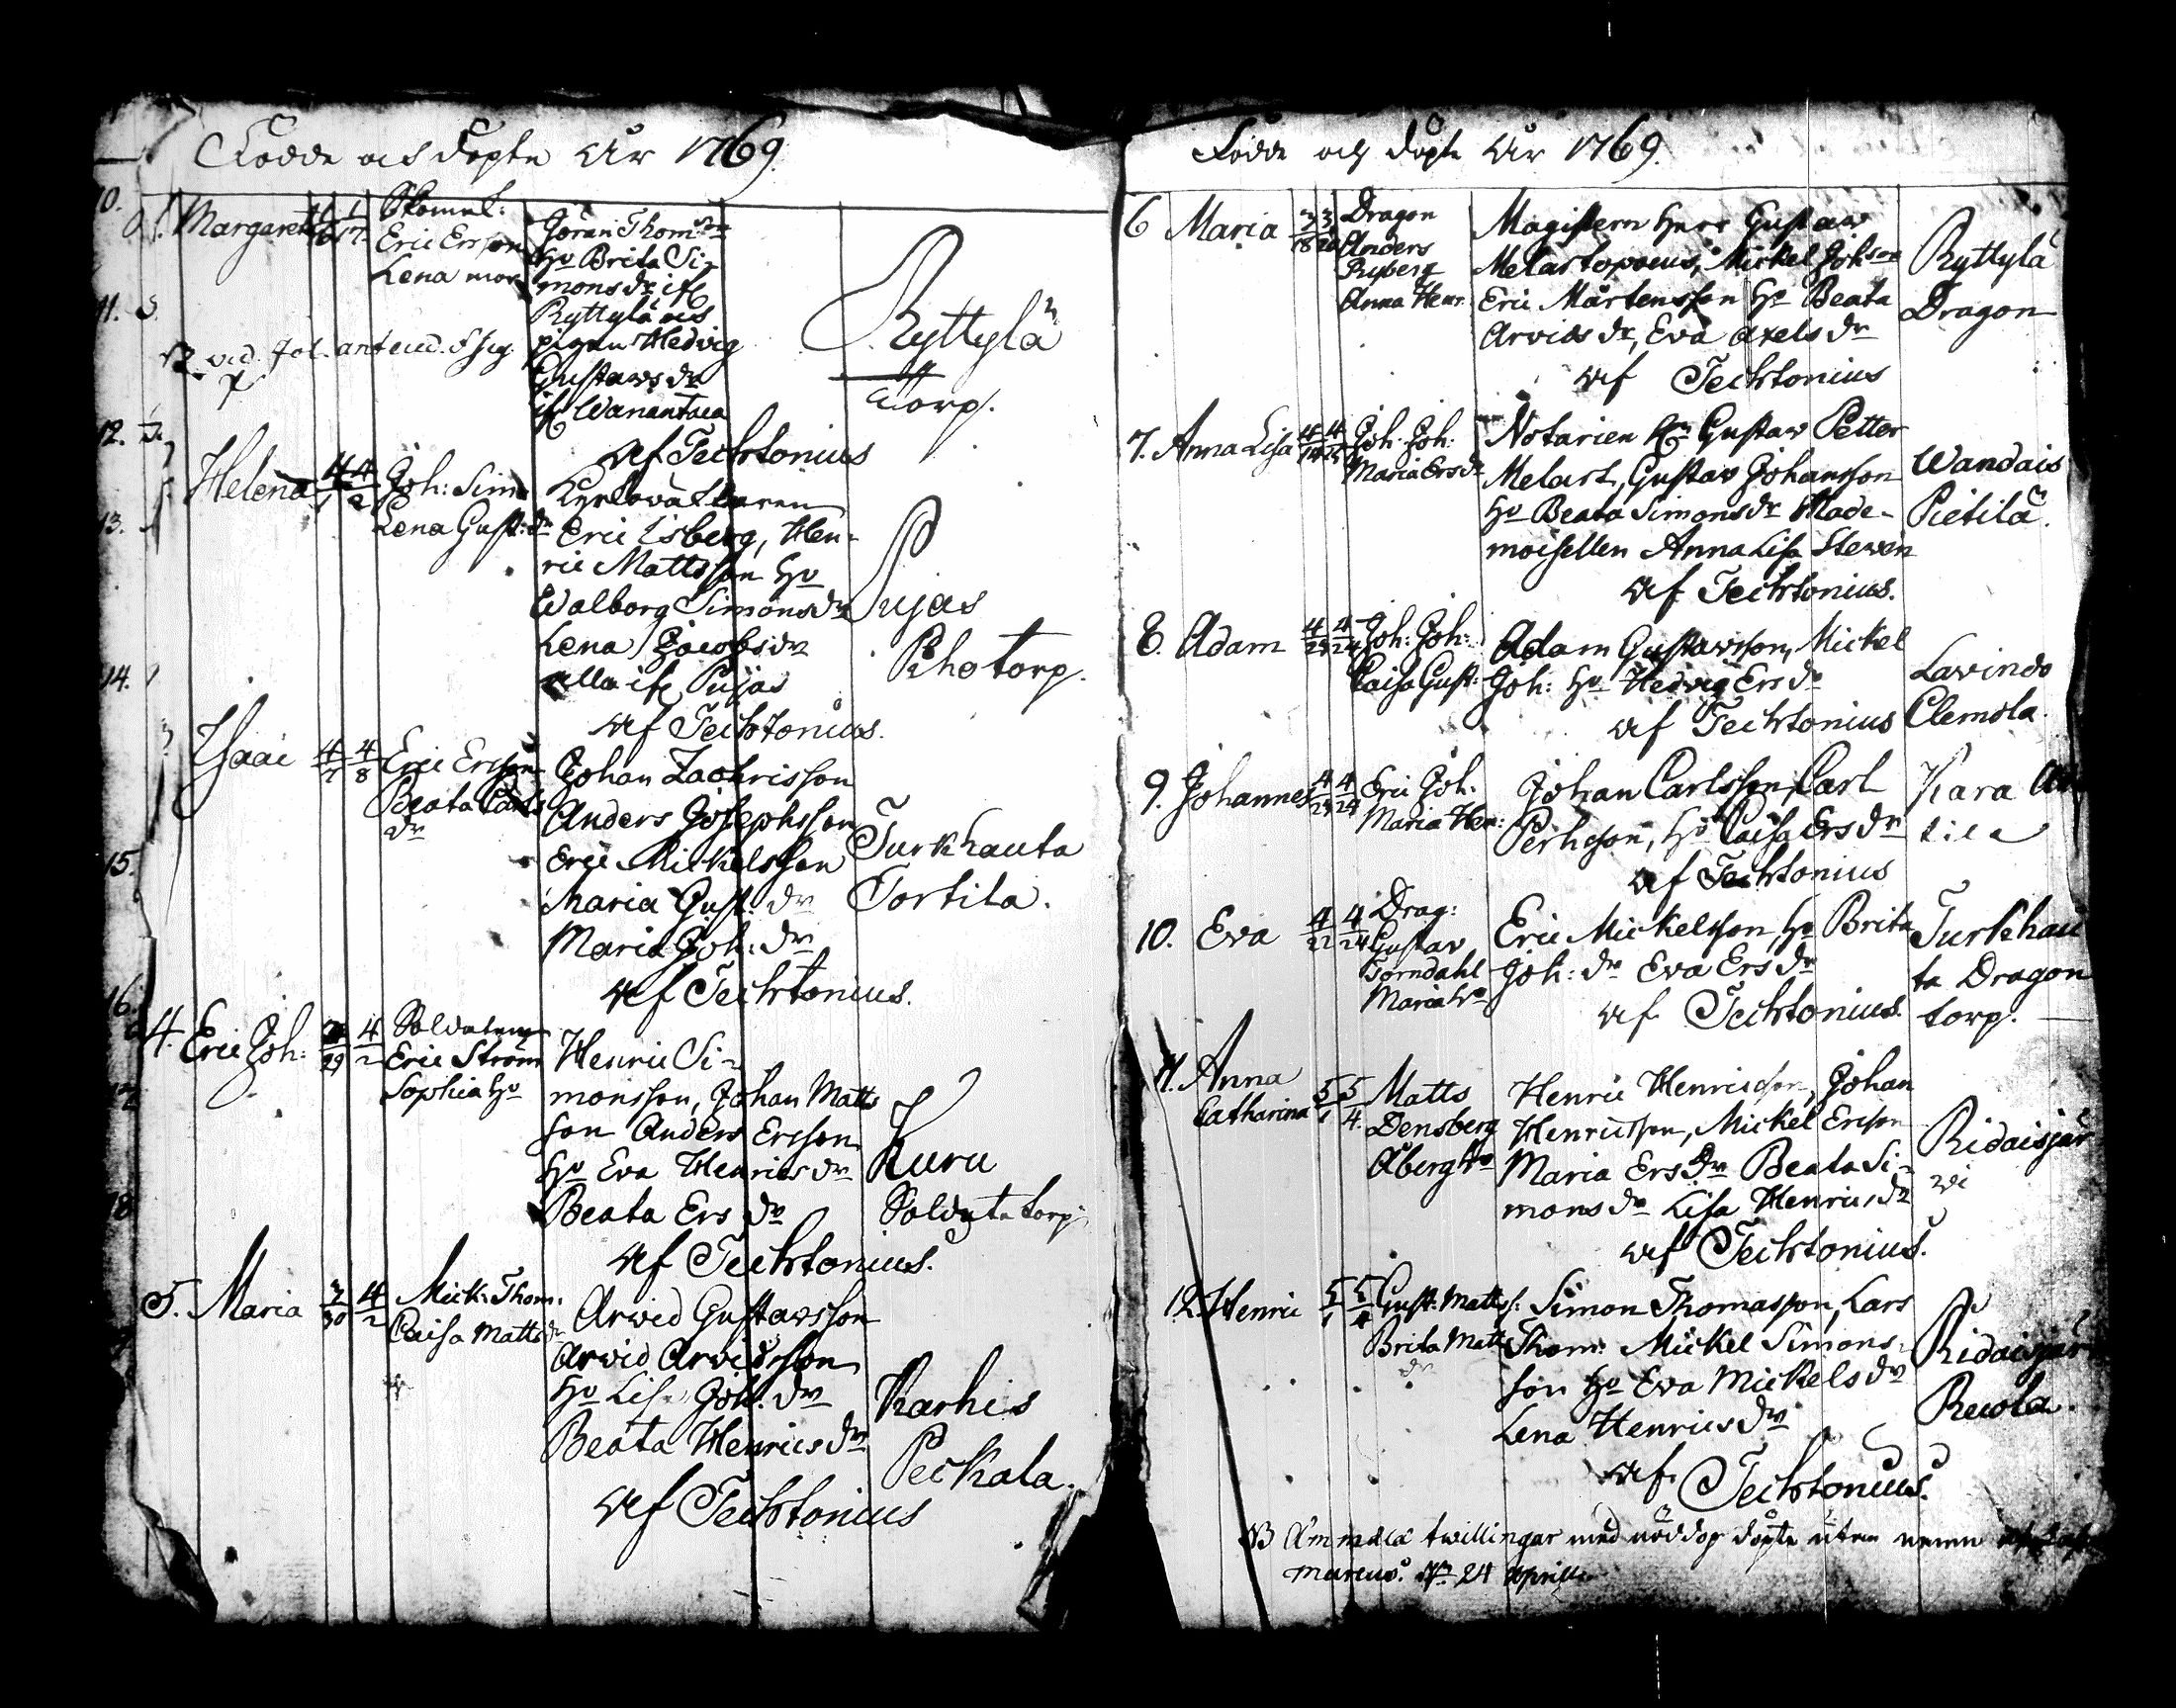 Födde och döpte År 1769.
10.
Margareta 16 17
Skomak:
Eric Ersson
Lena mor
Göran Thoms Sn
Hu Brita Si-
mons dr ifr
Ryttylä och
pigan Hedvig
Gustavs dr
ifr Wanantaca
Ryttylä
Torp.
11.
12.
af Techtonius
Helena 4/1 4/2 Joh: Sim:
Lena Gust: dr
Kyrkowäktaren
Eric Isberg, Hen-
ric Mattsson Hu
Walborg Simons dr
Lena Jacobs dr
alla ifr Pujas
Pujas
Rhotorp.
13.
14.
af Techtonius.
Isaac 4/7 4/8 Eric Ersson
Beata Carls
dr
Johan Zachrisson
Anders Josephsson
Eric Mickelsson
Maria Gust: dr
Maria Joh: dr
Turkhauta
Tortila.
15.
af Techtonius.
16.
4. Eric Joh: 29 4/2 Soldaten
Eric Ström
Sophia Hu
Henric Si-
monsson, Johan Matts
son Anders Ersson
Hu Eva Henrics dr
Beata Ers dr
Kuru
Soldate torp.
17
18
af Techtonius.
5. Maria 3/30 4/2 Mick: Thom:
Caisa Matts dr
Arvid Gustavsson
Arvid Arvidsson
Hu Lisa Joh: dr
Beata Henrics dr
Karhis
Peckala.
af Techtonius
Födde och döpte År 1769.
6 Maria 3/18 3/20 Dragon
Anders
Ryberg
Anna Henr.
Magistern Herr Gustaw
Melartopaeus, Mickel Johson
Eric Mårtensson Hu Beata
Arvids dr, Eva Axels dr
af Techtonius
Ryttylä
Dragon
7. Anna Lisa Joh: Joh:
Maria Ers dr
Notarien Hr Gustav Petter
Melart, Gustav Johansson
Hu Beata Simons dr Made-
moisellen Anna Lisa Stewen
af Techtonius.
Wandais
Pietilä.
8. Adam 4/23 4/24 Joh: Joh:
Caisa Gust:
Adam Gustavsson, Mickel
Joh: Hu Hedvig Ers dr
af Techtonius
Lavindo
Clemola.
9. Johannes 4/23 4/24 Eric Joh:
Maria Hen:
Johan Carlsson, Carl
Pehrson, Hu Caisa Ers dr
af Techtonius
Kara
tila
10. Eva 4/22 4/24 Drag:
Gustav
Torndahl
Maria Hu
Eric Mickelsson, Hu Brita
Joh: dr Eva Ers dr
af Techtonius.
Turkhau
ta Dragon
torp.
11. Anna
Catharina 5/1 5/4. Matts
Densberg
Åberg Hu
Henric Henricson, Johan
Henricsson, Mickel Ersson
Maria Ers dr Beata Si-
mons dr Lisa Henrics dr
af Techtonius.
Ridaisjär
wi
12. Henric 5/1 5/4 Gust: Matts:
Brita Matts
dr
Simon Thomasson, Lars
Thom: Mickel Simons-
son Hu Eva Mickels dr
Lena Henrics dr
af Techtonius.
Ridaisjär
Recola.
NB Ammälä twillingar med nöddop döpte utan namn
24 Aprill